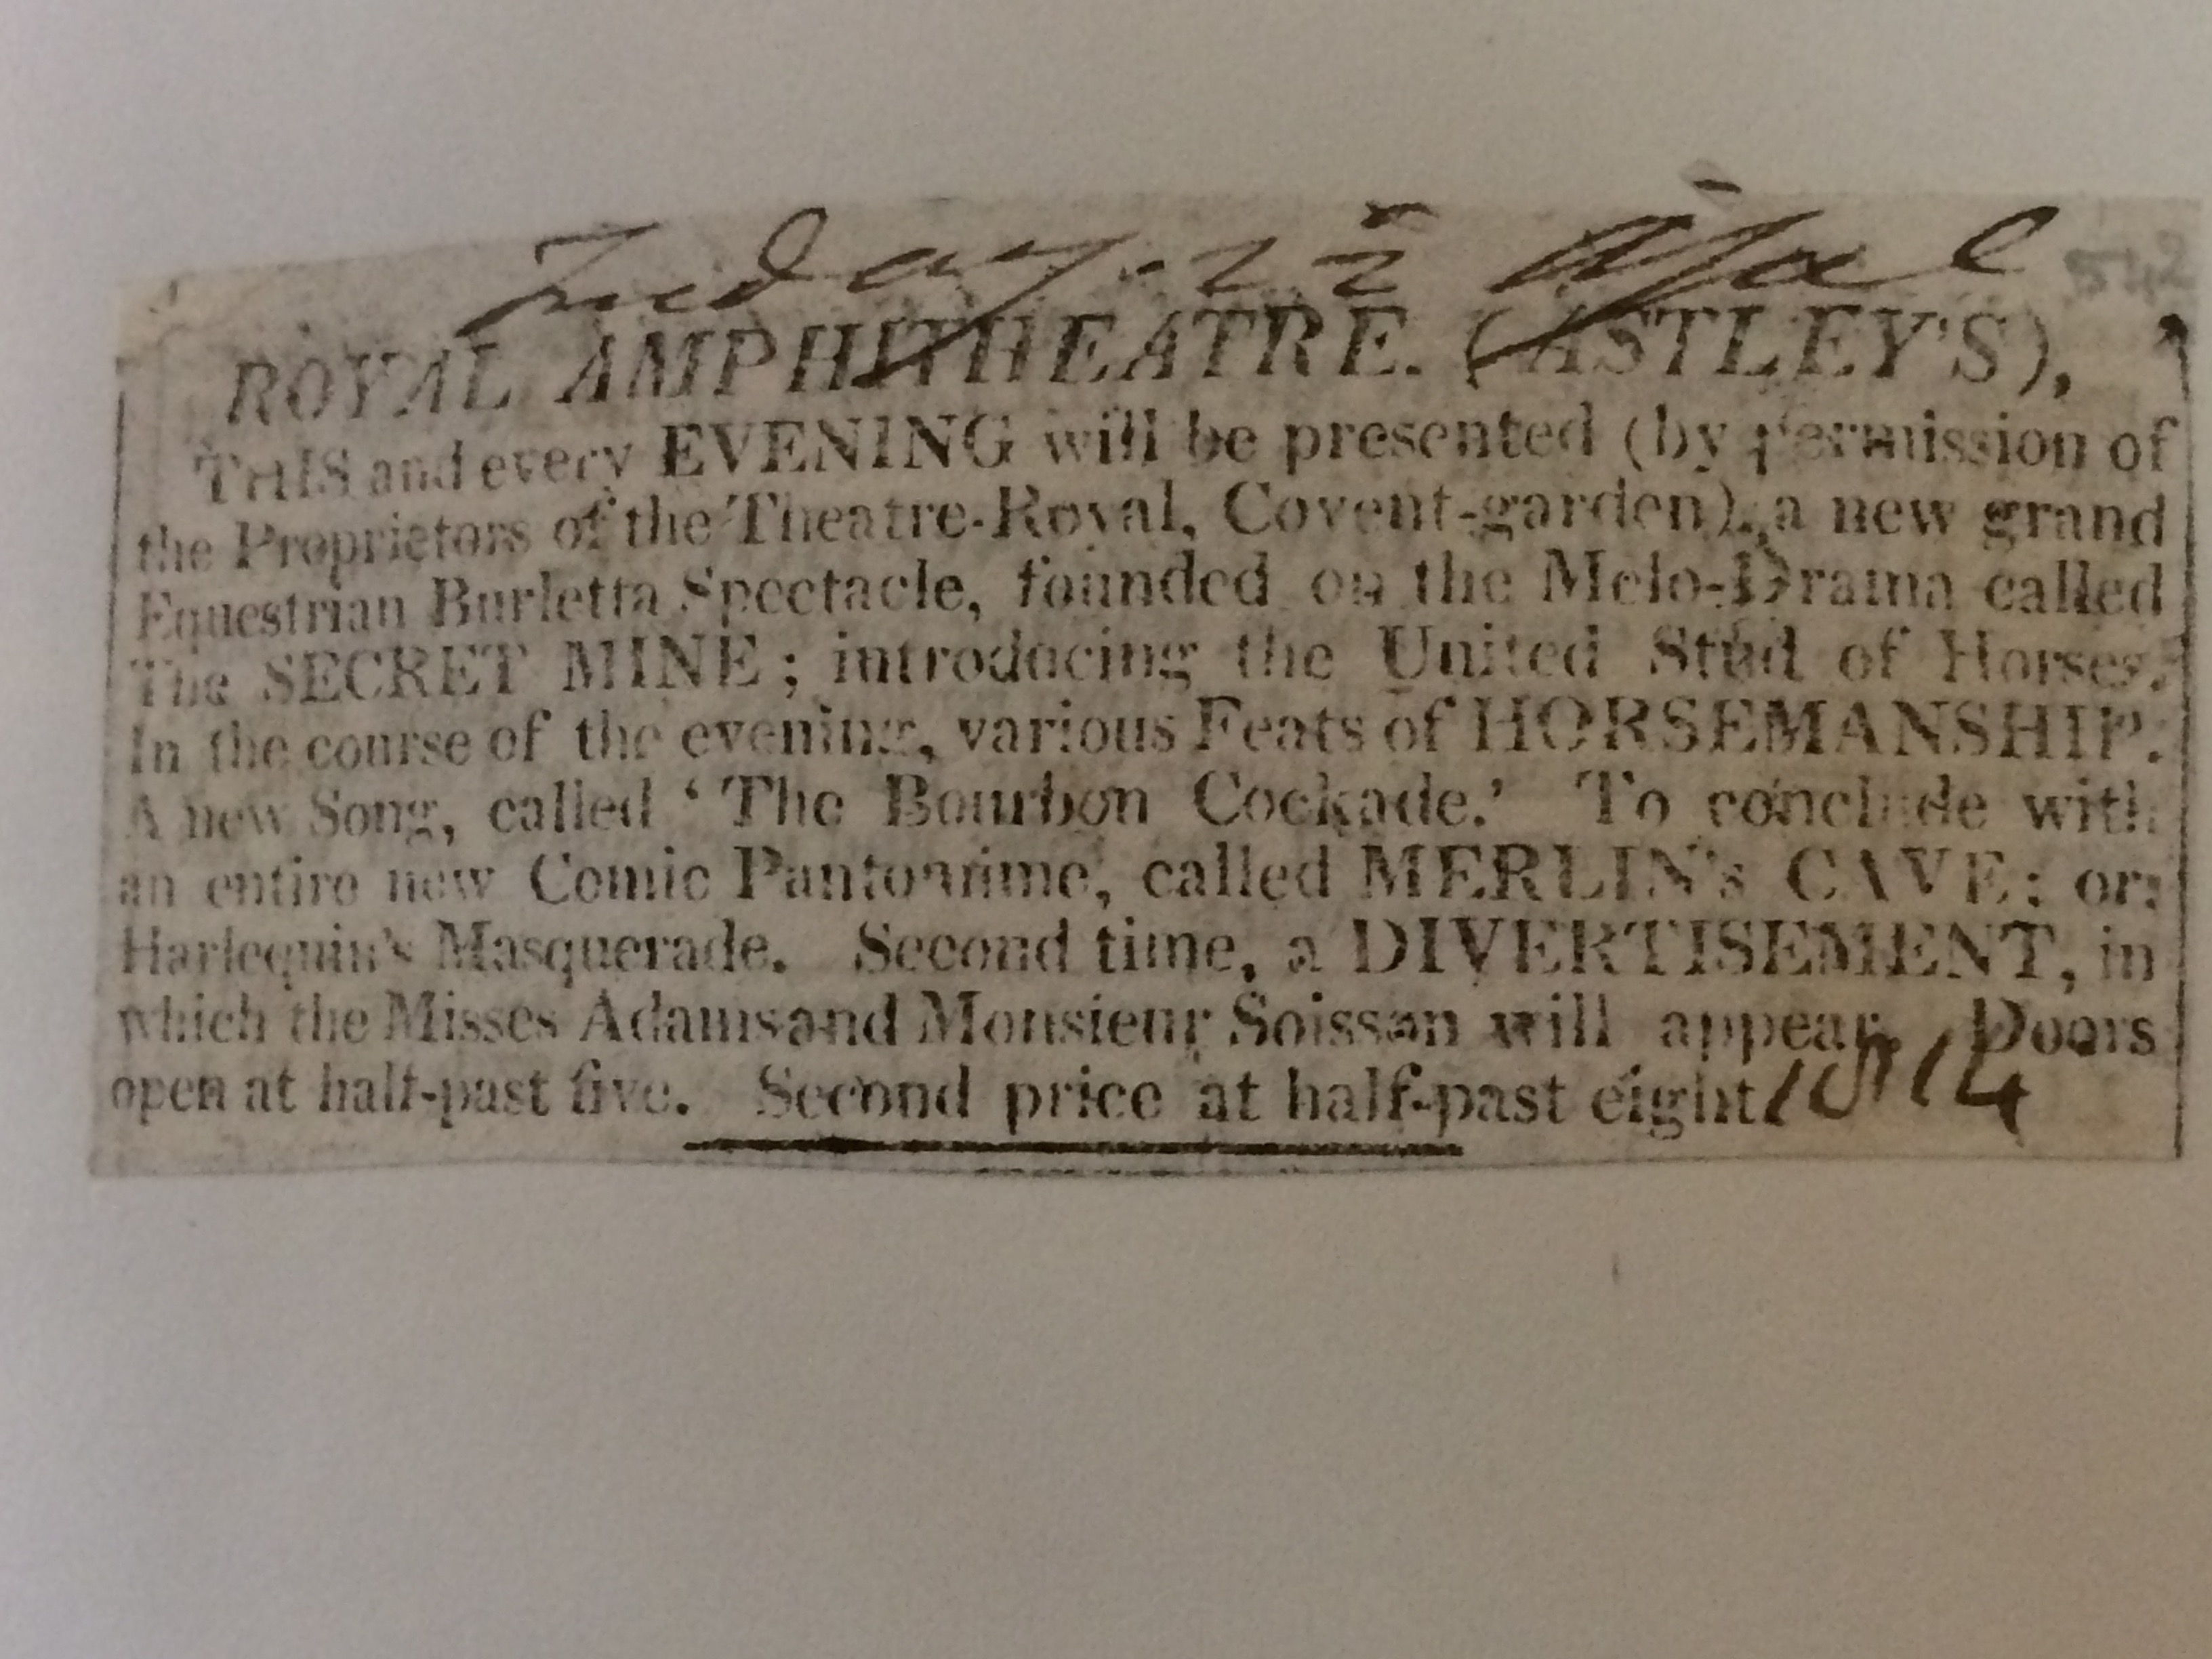 Friday 22 April
542
ROYAL AMPHITHEATRE. (ASTLEY'S),
THIS and every EVENING will be presented (by permission of
the Proprietors of the Theatre-Royal, Covent-garden), a new grand
Equestrian Burletta Spectacle, founded on the Melo-Drama called
The SECRET MINE; introducing the United Stud of Horses.
In the course of the evening, various Feats of HORSEMANSHIP.
A new Song, called ‘The Bourbon Cockade.’ To conclude with
an entire new Comic Pantomime, called MERLIN's CAVE; or,
Harlequin's Masquerade. Second time, a DIVERTISEMENT, in
which the Misses Adams and Monsieur Soissan will appear. Doors
open at half-past five. Second price at half-past eight 1814